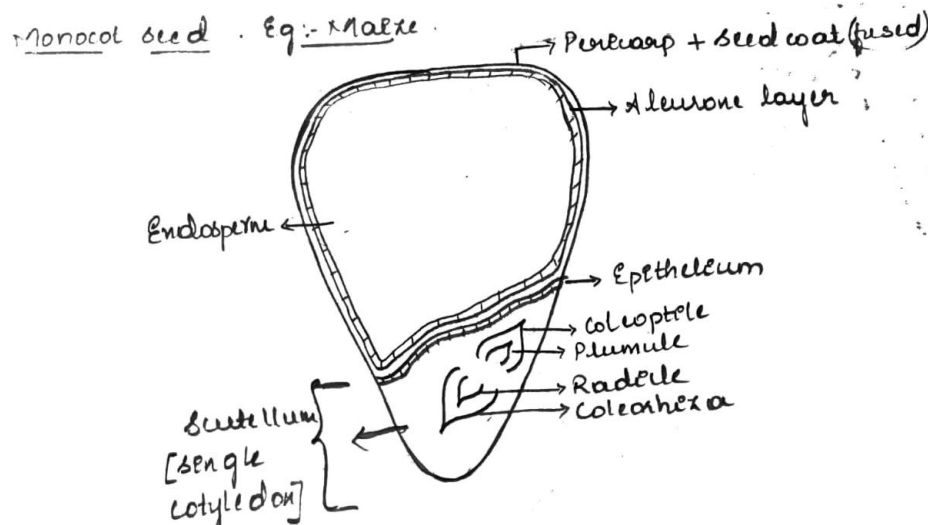 Monocot seed . Eg :- Maize .
Pericarp + seed coat (fused)
Aleurone layer
Endosperm
Epithelium
Coleoptile
Plumule
Radicle
Coleorhiza
Scutellum
[single
cotyledon]